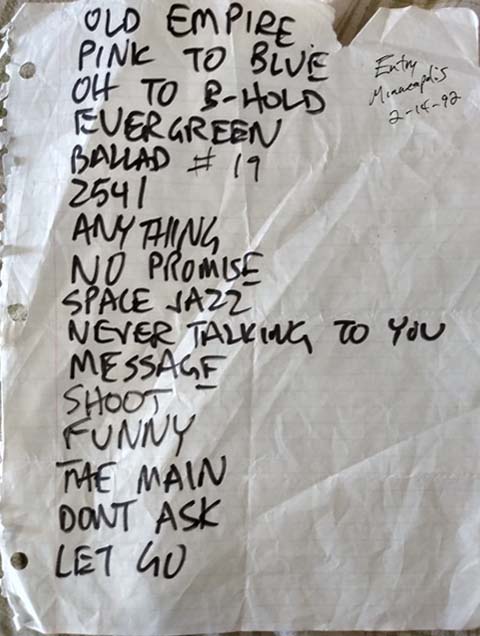 OLD EMPIRE
PINK TO BLUE
OH TO B-HOLD
EVERGREEN
BALLAD # 19
2541
ANYTHING
NO PROMISE
SPACE JAZZ
NEVER TALKING TO YOU
MESSAGE
SHOOT
FUNNY
THE MAIN
DONT ASK
LET GO
Entry
Minneapolis
2-14-92